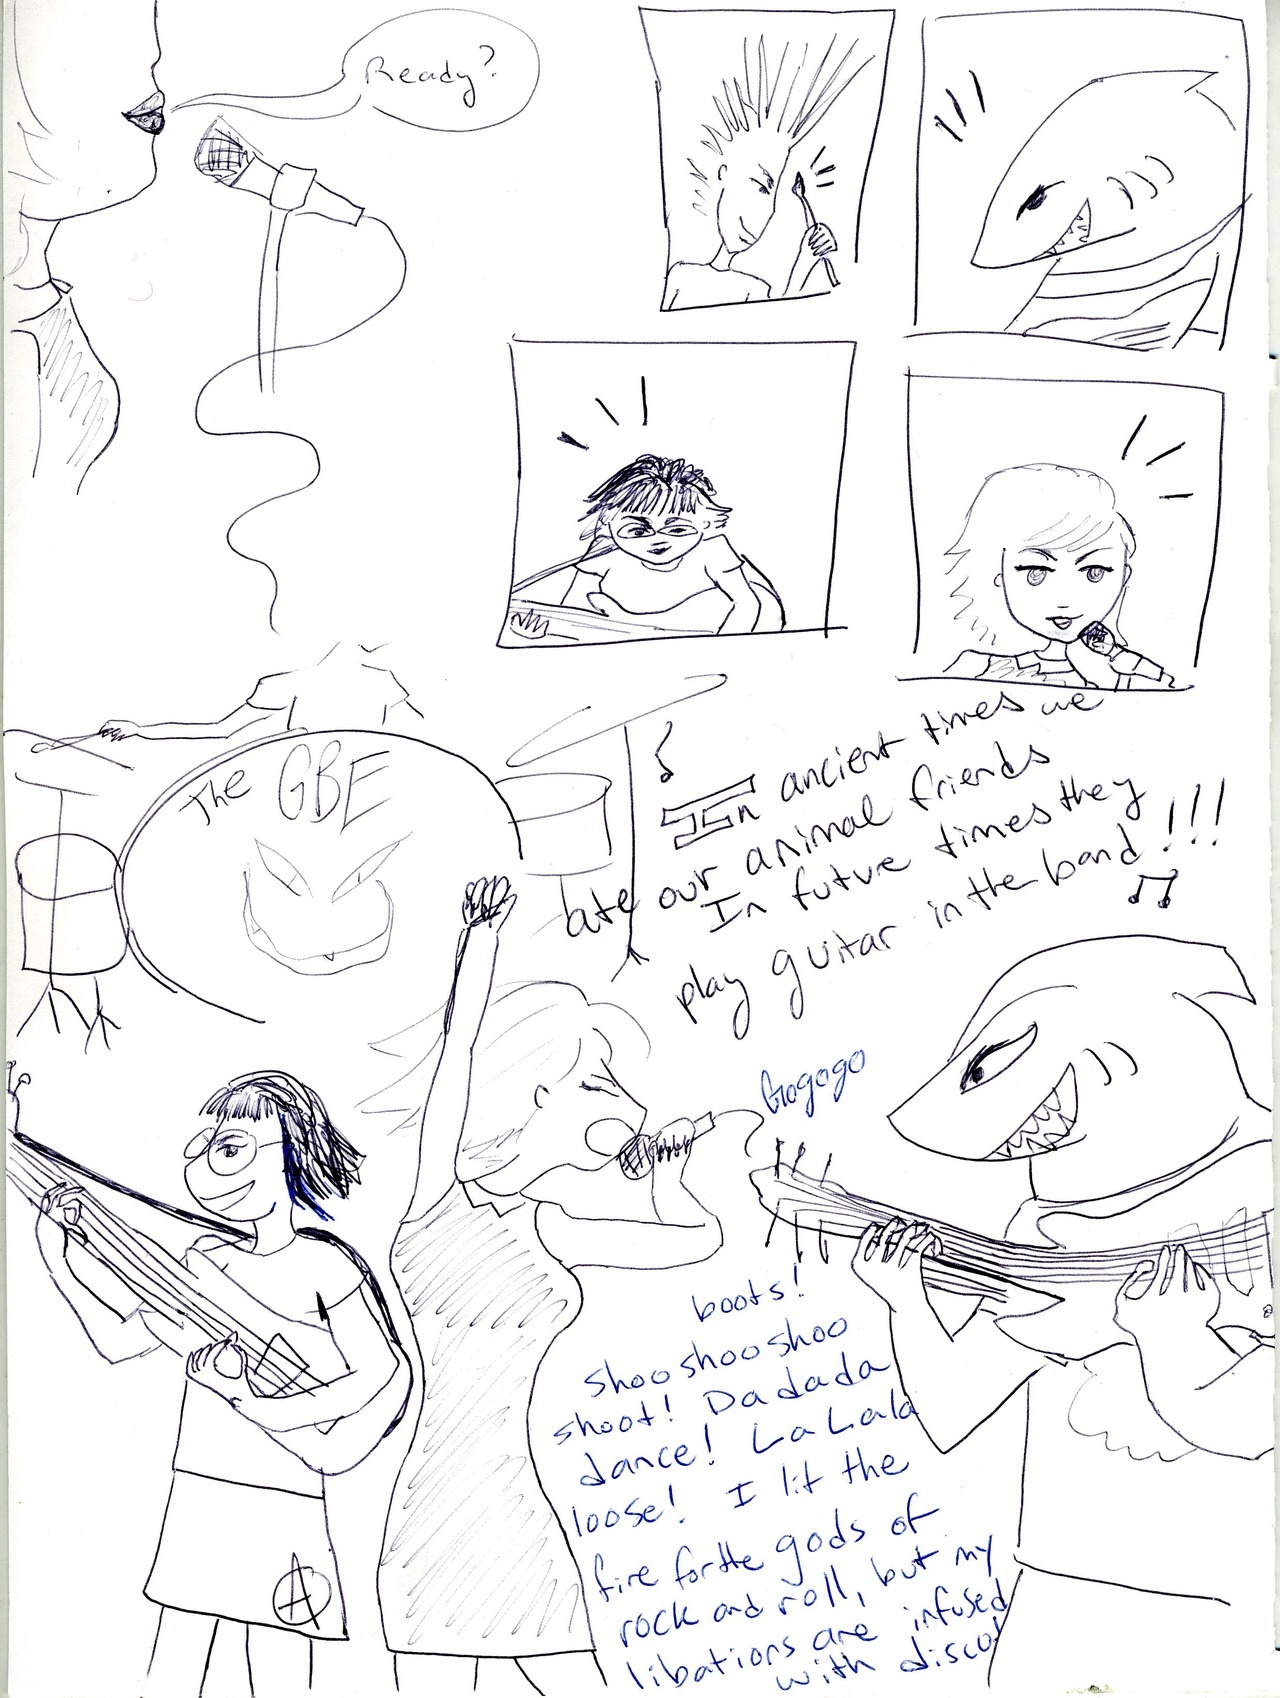 Ready?
The GBE
In ancient times we
ate our animal friends
In future times they
play guitar in the band!!!
Gogogo
boots!
Shooshooshoo
shoot! Dadada
dance! LaLala
loose! I lit the
fire for the gods of
rock and roll, but my
libations are infused
with disco!
A